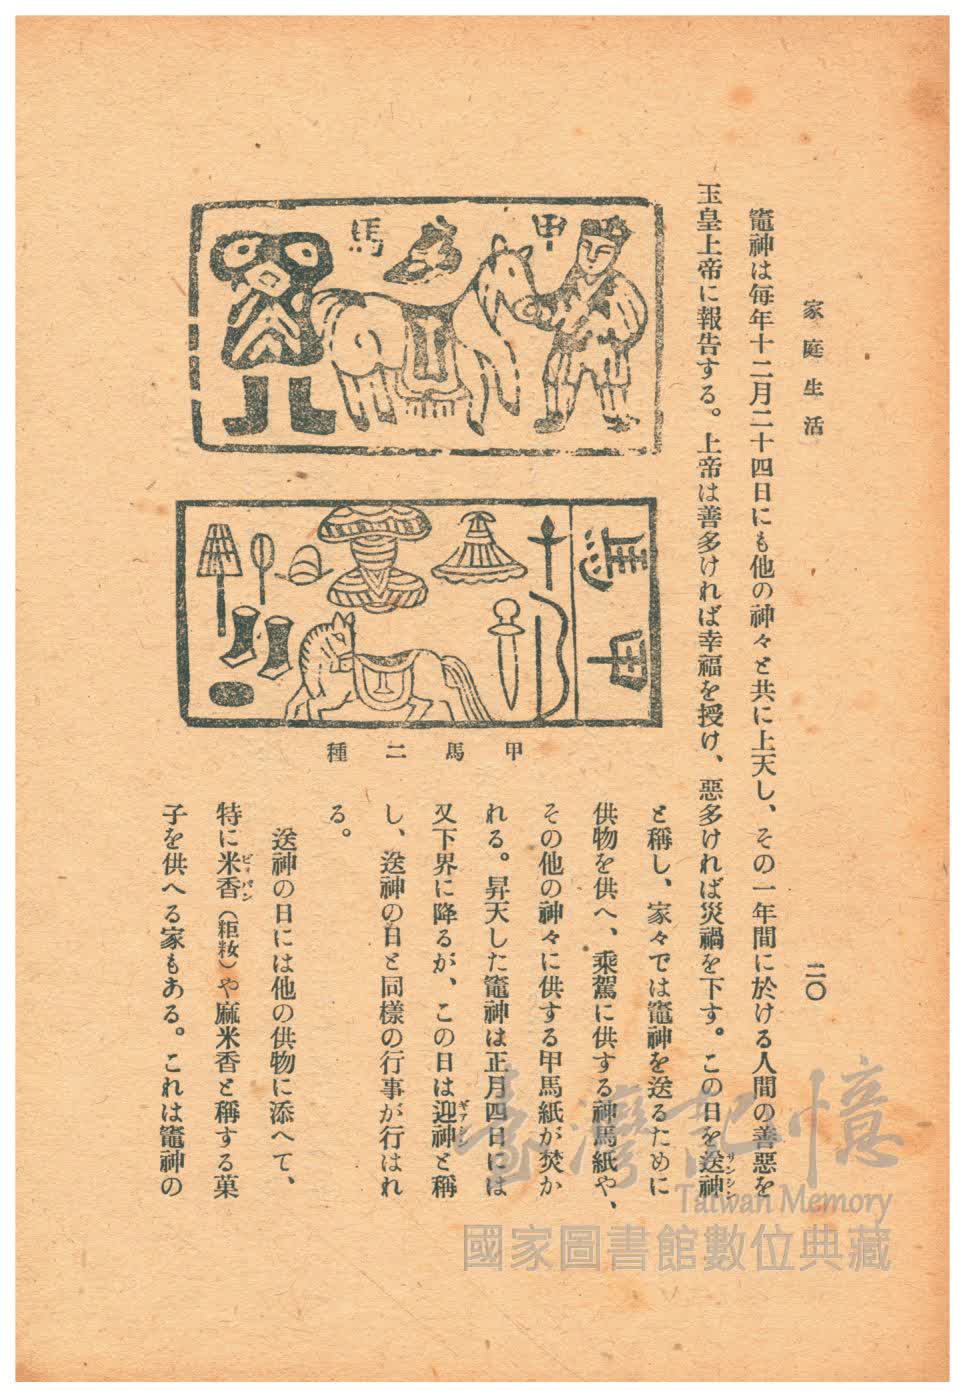 家庭生活
二〇
竈神は每年十二月二十四日にも他の神々と共に上天し、その一年間に於ける人間の善惡を
玉皇上帝に報告する。上帝は善多ければ幸福を授け、惡多ければ災禍を下す。この日を送神
サンシン
と稱し、家々では竈神を送るために
供物を供へ、乘駕に供する神馬紙や、
その他の神々に供する甲馬紙が焚か
れる。昇天した竈神は正月四日には
又下界に降るが、この日は迎神と稱
ギアシン
し、送神の日と同樣の行事が行はれ
る。
送神の日には他の供物に添へて、
特に米香（粔籹）や麻米香と稱する菓
ビイパン
子を供へる家もある。これは竈神の
甲馬
馬甲
甲馬二種
臺灣記憶
Taiwan Memory
國家圖書館數位典藏